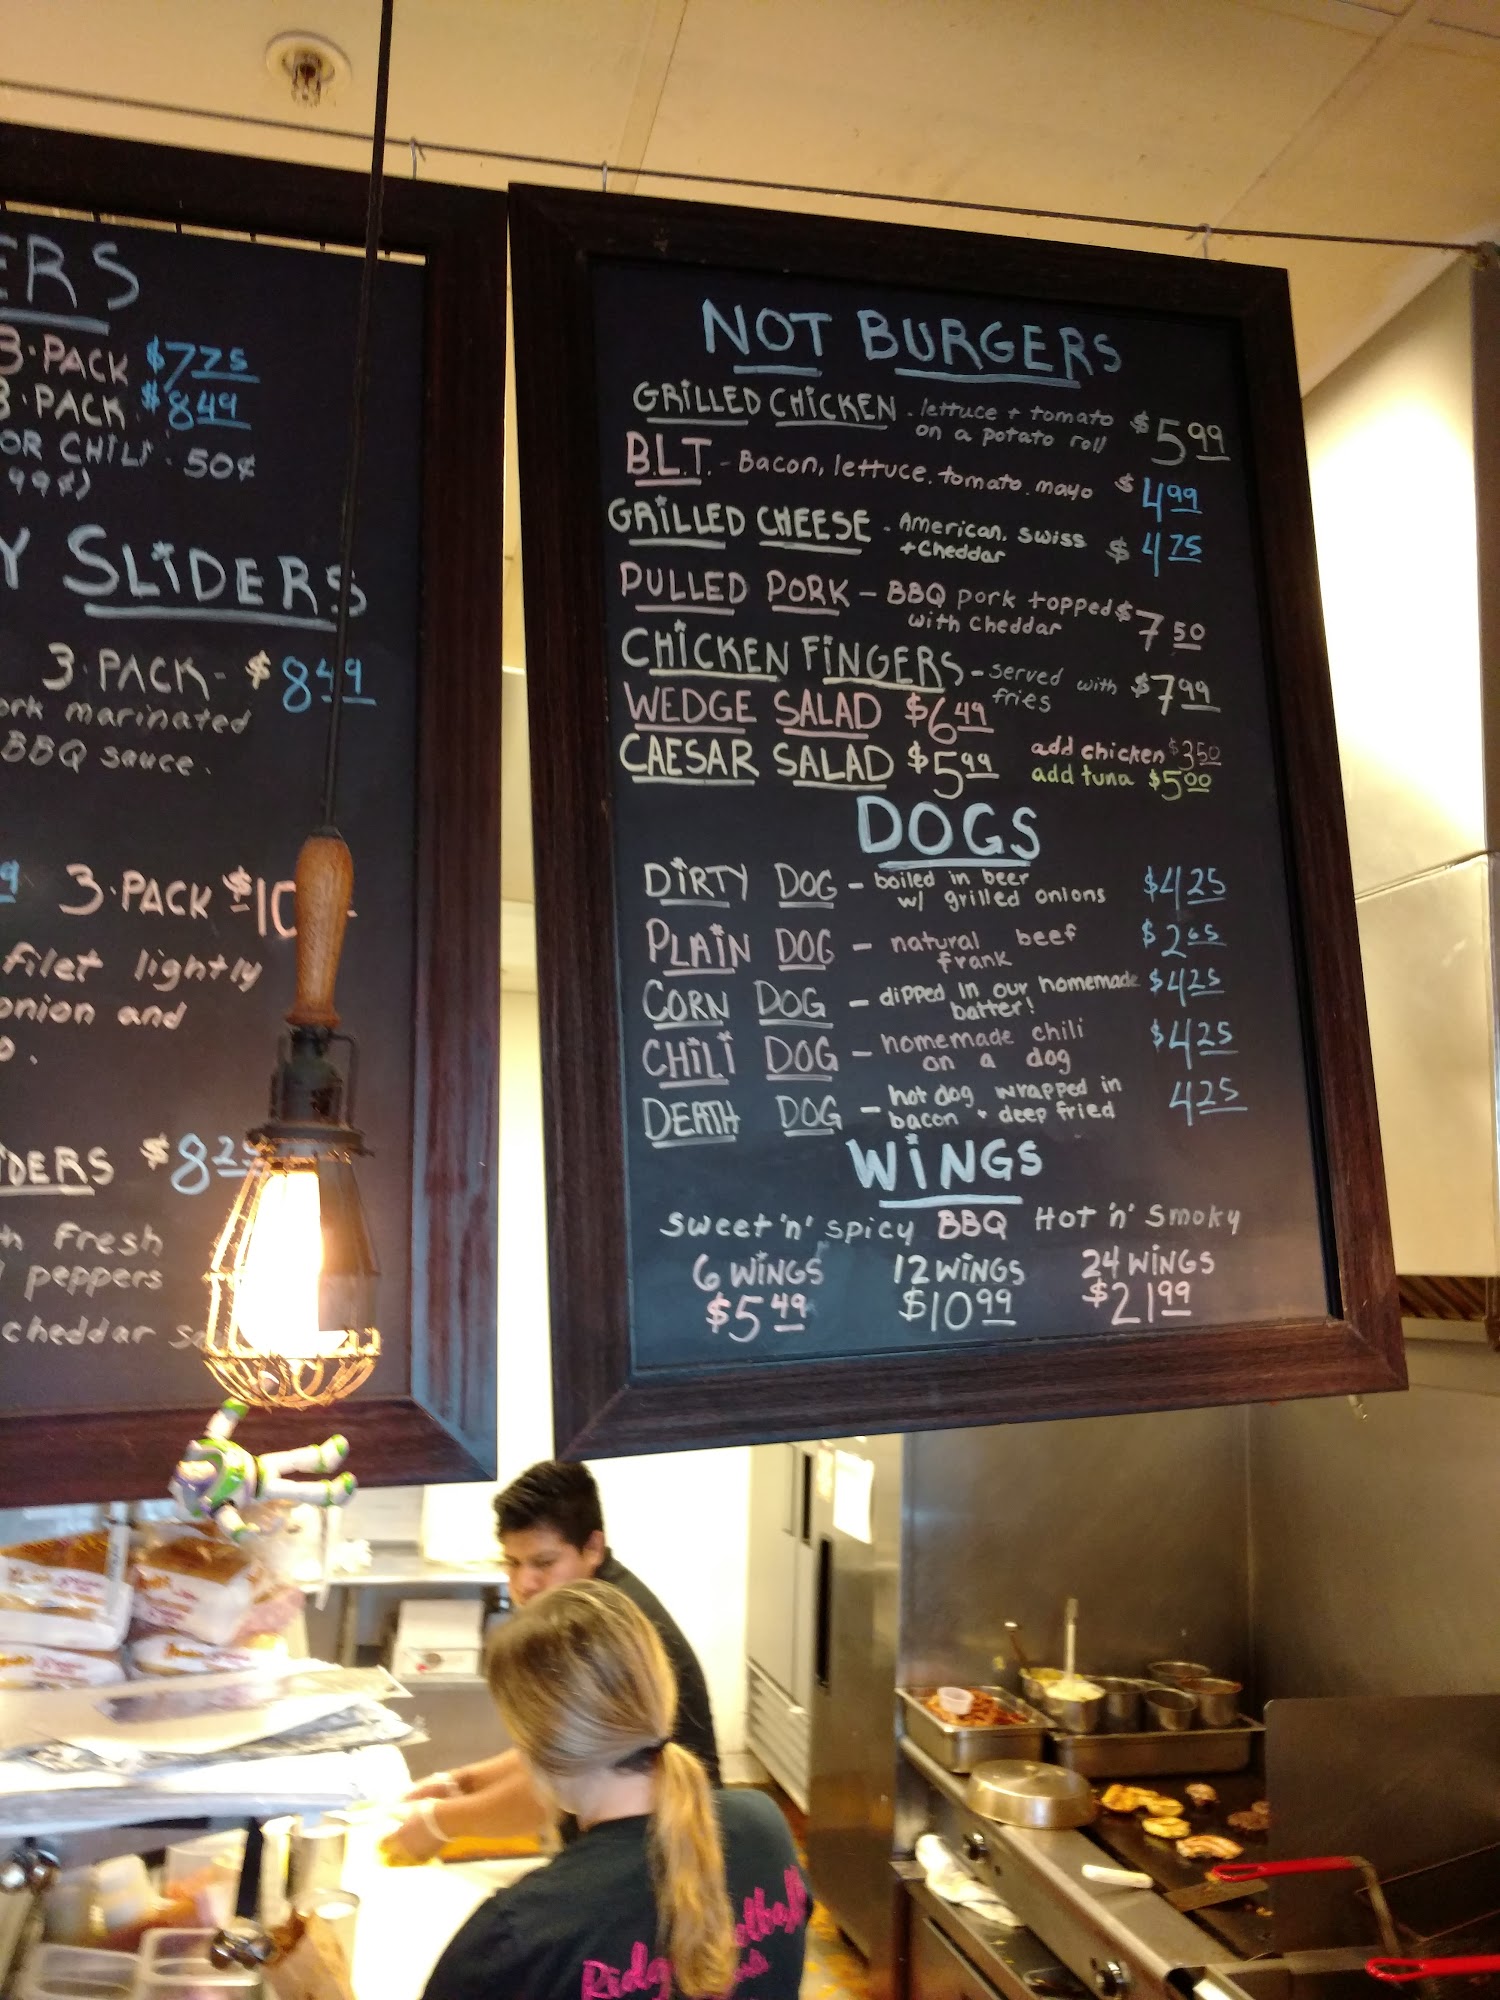 ERS
3·PACK $7.75
3·PACK $8.49
OR CHILI · 50¢
99¢)
Y SLiDERS
3·PACK- $8.49
ork marinated
BBQ sauce.
9 3·PACK $10
filet lightly
onion and
o.
iDERS $8.25
h Fresh
peppers
cheddar
NOT BURGERS
GRiLLED CHiCKEN - lettuce + tomato $5.99
on a potato roll
B.L.T. - Bacon, lettuce, tomato, mayo $4.99
GRiLLED CHEESE - American, swiss $4.75
+ cheddar
PULLED PORK - BBQ pork topped $7.50
with cheddar
CHiCKEN FiNGERS - served with $7.99
fries
WEDGE SALAD $6.49
CAESAR SALAD $5.99
add chicken $3.50
add tuna $5.00
DOGS
DiRTY DOG - boiled in beer $4.25
w/ grilled onions
PLAiN DOG - natural beef $2.65
frank
CORN DOG - dipped in our homemade $4.25
batter!
CHiLi DOG - homemade chili $4.25
on a dog
DEATH DOG - hot dog wrapped in 4.25
bacon + deep fried
WiNGS
Sweet 'n' Spicy BBQ Hot 'n' Smoky
6 WiNGS 12 WiNGS 24 WiNGS
$5.49 $10.99 $21.99
Ridg